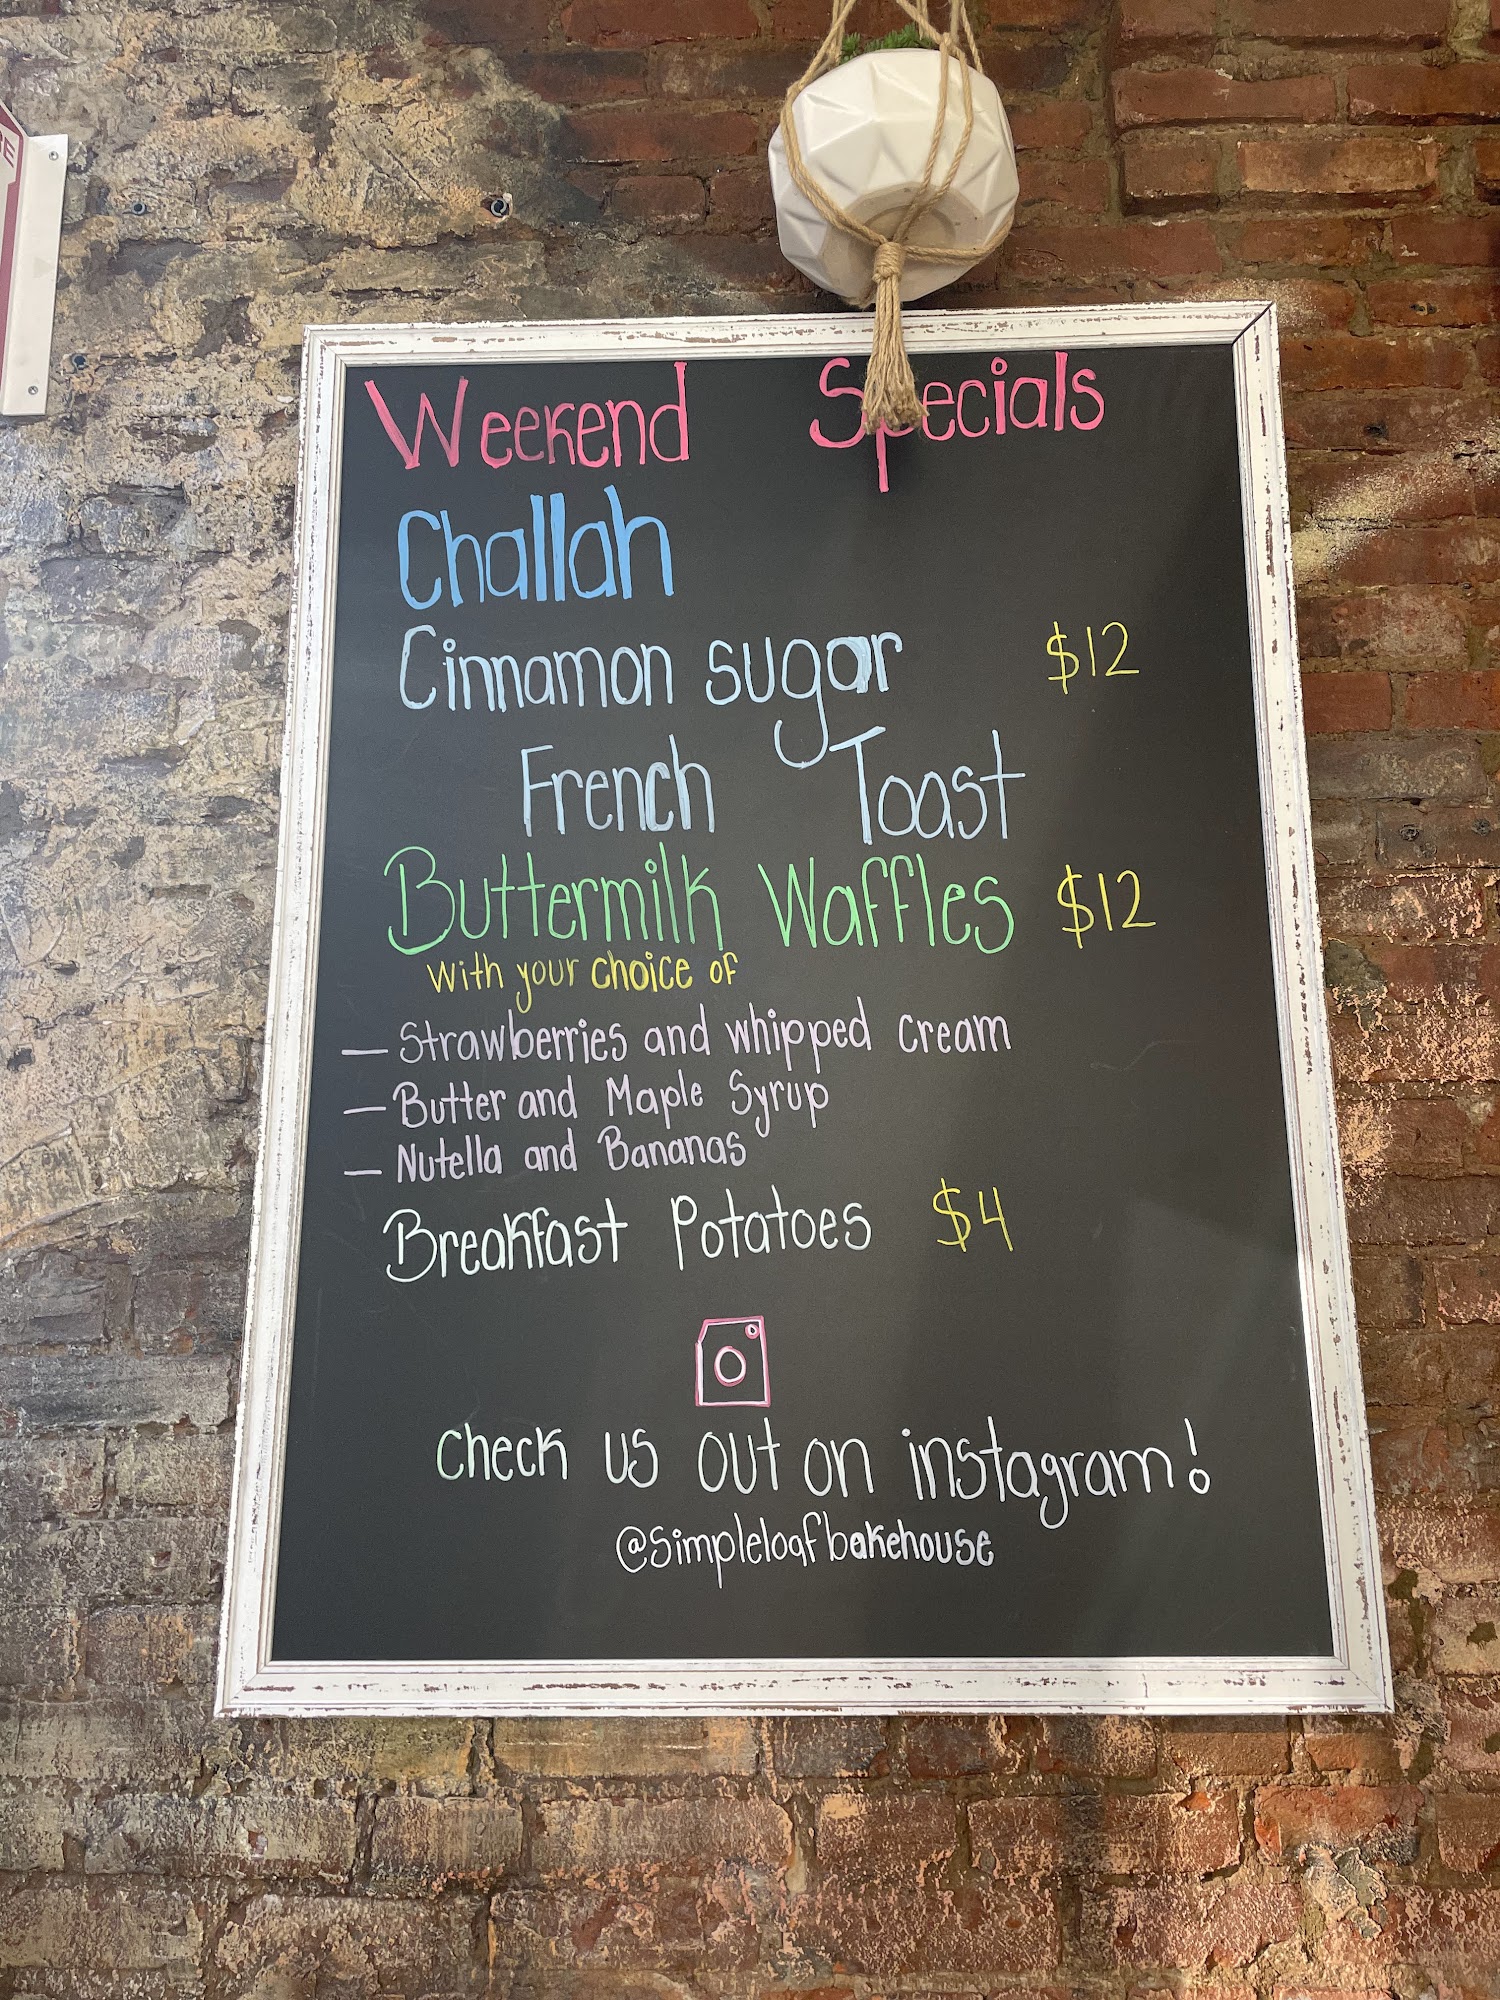 Weekend Specials
Challah
Cinnamon sugar $12
French Toast
Buttermilk Waffles $12
with your choice of
— Strawberries and whipped cream
— Butter and Maple Syrup
— Nutella and Bananas
Breakfast Potatoes $4
Check us out on instagram!
@simpleloafbakehouse